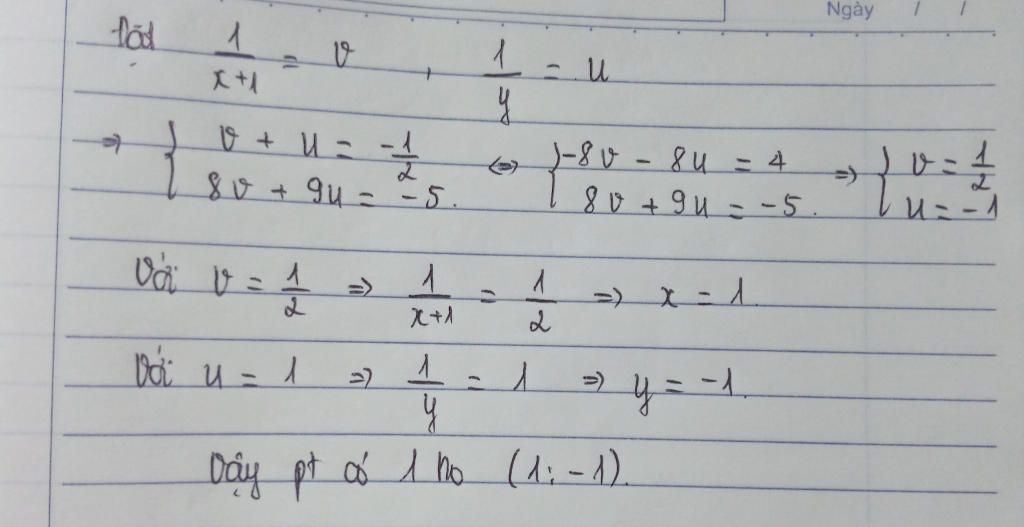 Ngày / /
Đặt 1/(x+1) = v , 1/y = u
=> { v + u = -1/2 <=> { -8v - 8u = 4 => { v = 1/2
8v + 9u = -5. 8v + 9u = -5. u = -1
Với v = 1/2 => 1/(x+1) = 1/2 => x = 1.
Với u = 1 => 1/y = 1 => y = -1.
Vậy pt có 1 no (1; -1).